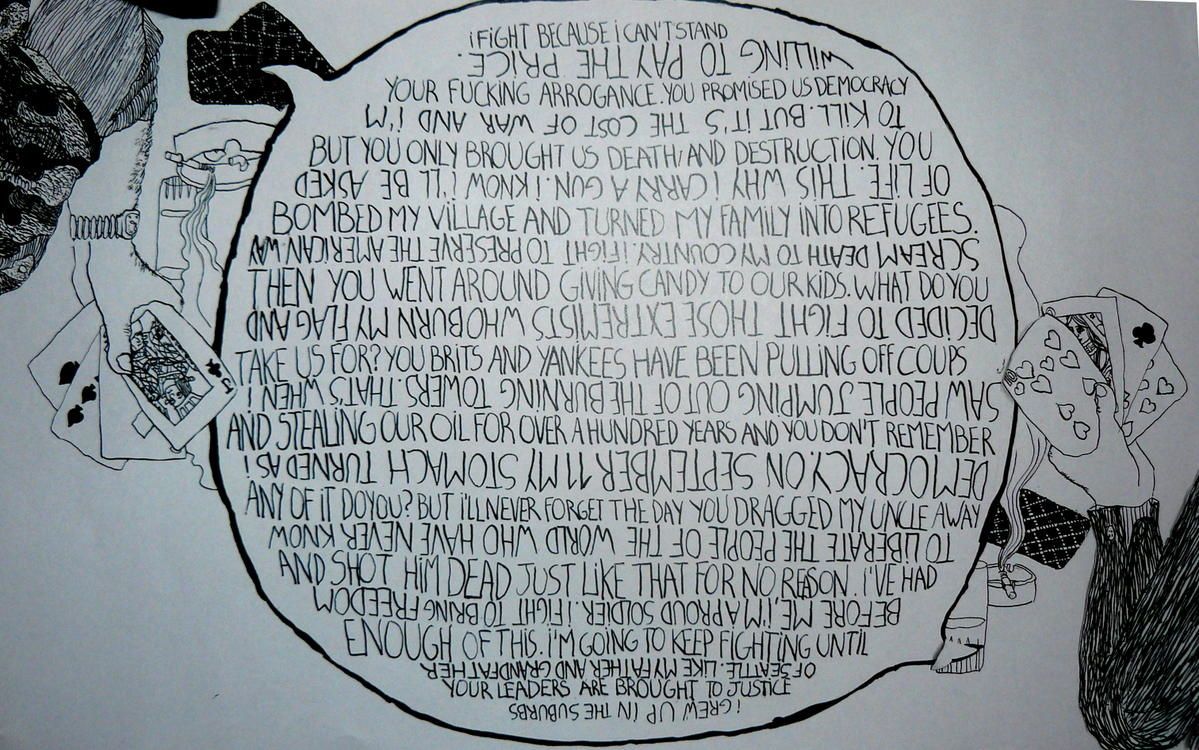 I FIGHT BECAUSE I CAN'T STAND
YOUR FUCKING ARROGANCE. YOU PROMISED US DEMOCRACY
BUT YOU ONLY BROUGHT US DEATH, AND DESTRUCTION. YOU
BOMBED MY VILLAGE AND TURNED MY FAMILY INTO REFUGEES.
THEN YOU WENT AROUND GIVING CANDY TO OUR KIDS. WHAT DO YOU
TAKE US FOR? YOU BRITS AND YANKEES HAVE BEEN PULLING OFF COUPS
AND STEALING OUR OIL FOR OVER A HUNDRED YEARS AND YOU DON'T REMEMBER
ANY OF IT DO YOU? BUT I'LL NEVER FORGET THE DAY YOU DRAGGED MY UNCLE AWAY
AND SHOT HIM DEAD JUST LIKE THAT FOR NO REASON. I'VE HAD
ENOUGH OF THIS. I'M GOING TO KEEP FIGHTING UNTIL
YOUR LEADERS ARE BROUGHT TO JUSTICE
I GREW UP IN THE SUBURBS
OF SEATTLE. LIKE MY FATHER AND GRANDFATHER
BEFORE ME, I'M A PROUD SOLDIER. I FIGHT TO BRING FREEDOM
TO LIBERATE THE PEOPLE OF THE WORLD WHO HAVE NEVER KNOW
DEMOCRACY. ON SEPTEMBER 11 MY STOMACH TURNED AS I
SAW PEOPLE JUMPING OUT OF THE BURNING TOWERS. THAT'S WHEN I
DECIDED TO FIGHT THOSE EXTREMISTS WHO BURN MY FLAG AND
SCREAM DEATH TO MY COUNTRY. I FIGHT TO PRESERVE THE AMERICAN WAY
OF LIFE. THIS WHY I CARRY A GUN. I KNOW I'LL BE ASKED
TO KILL. BUT IT'S THE COST OF WAR AND I'M
WILLING TO PAY THE PRICE.